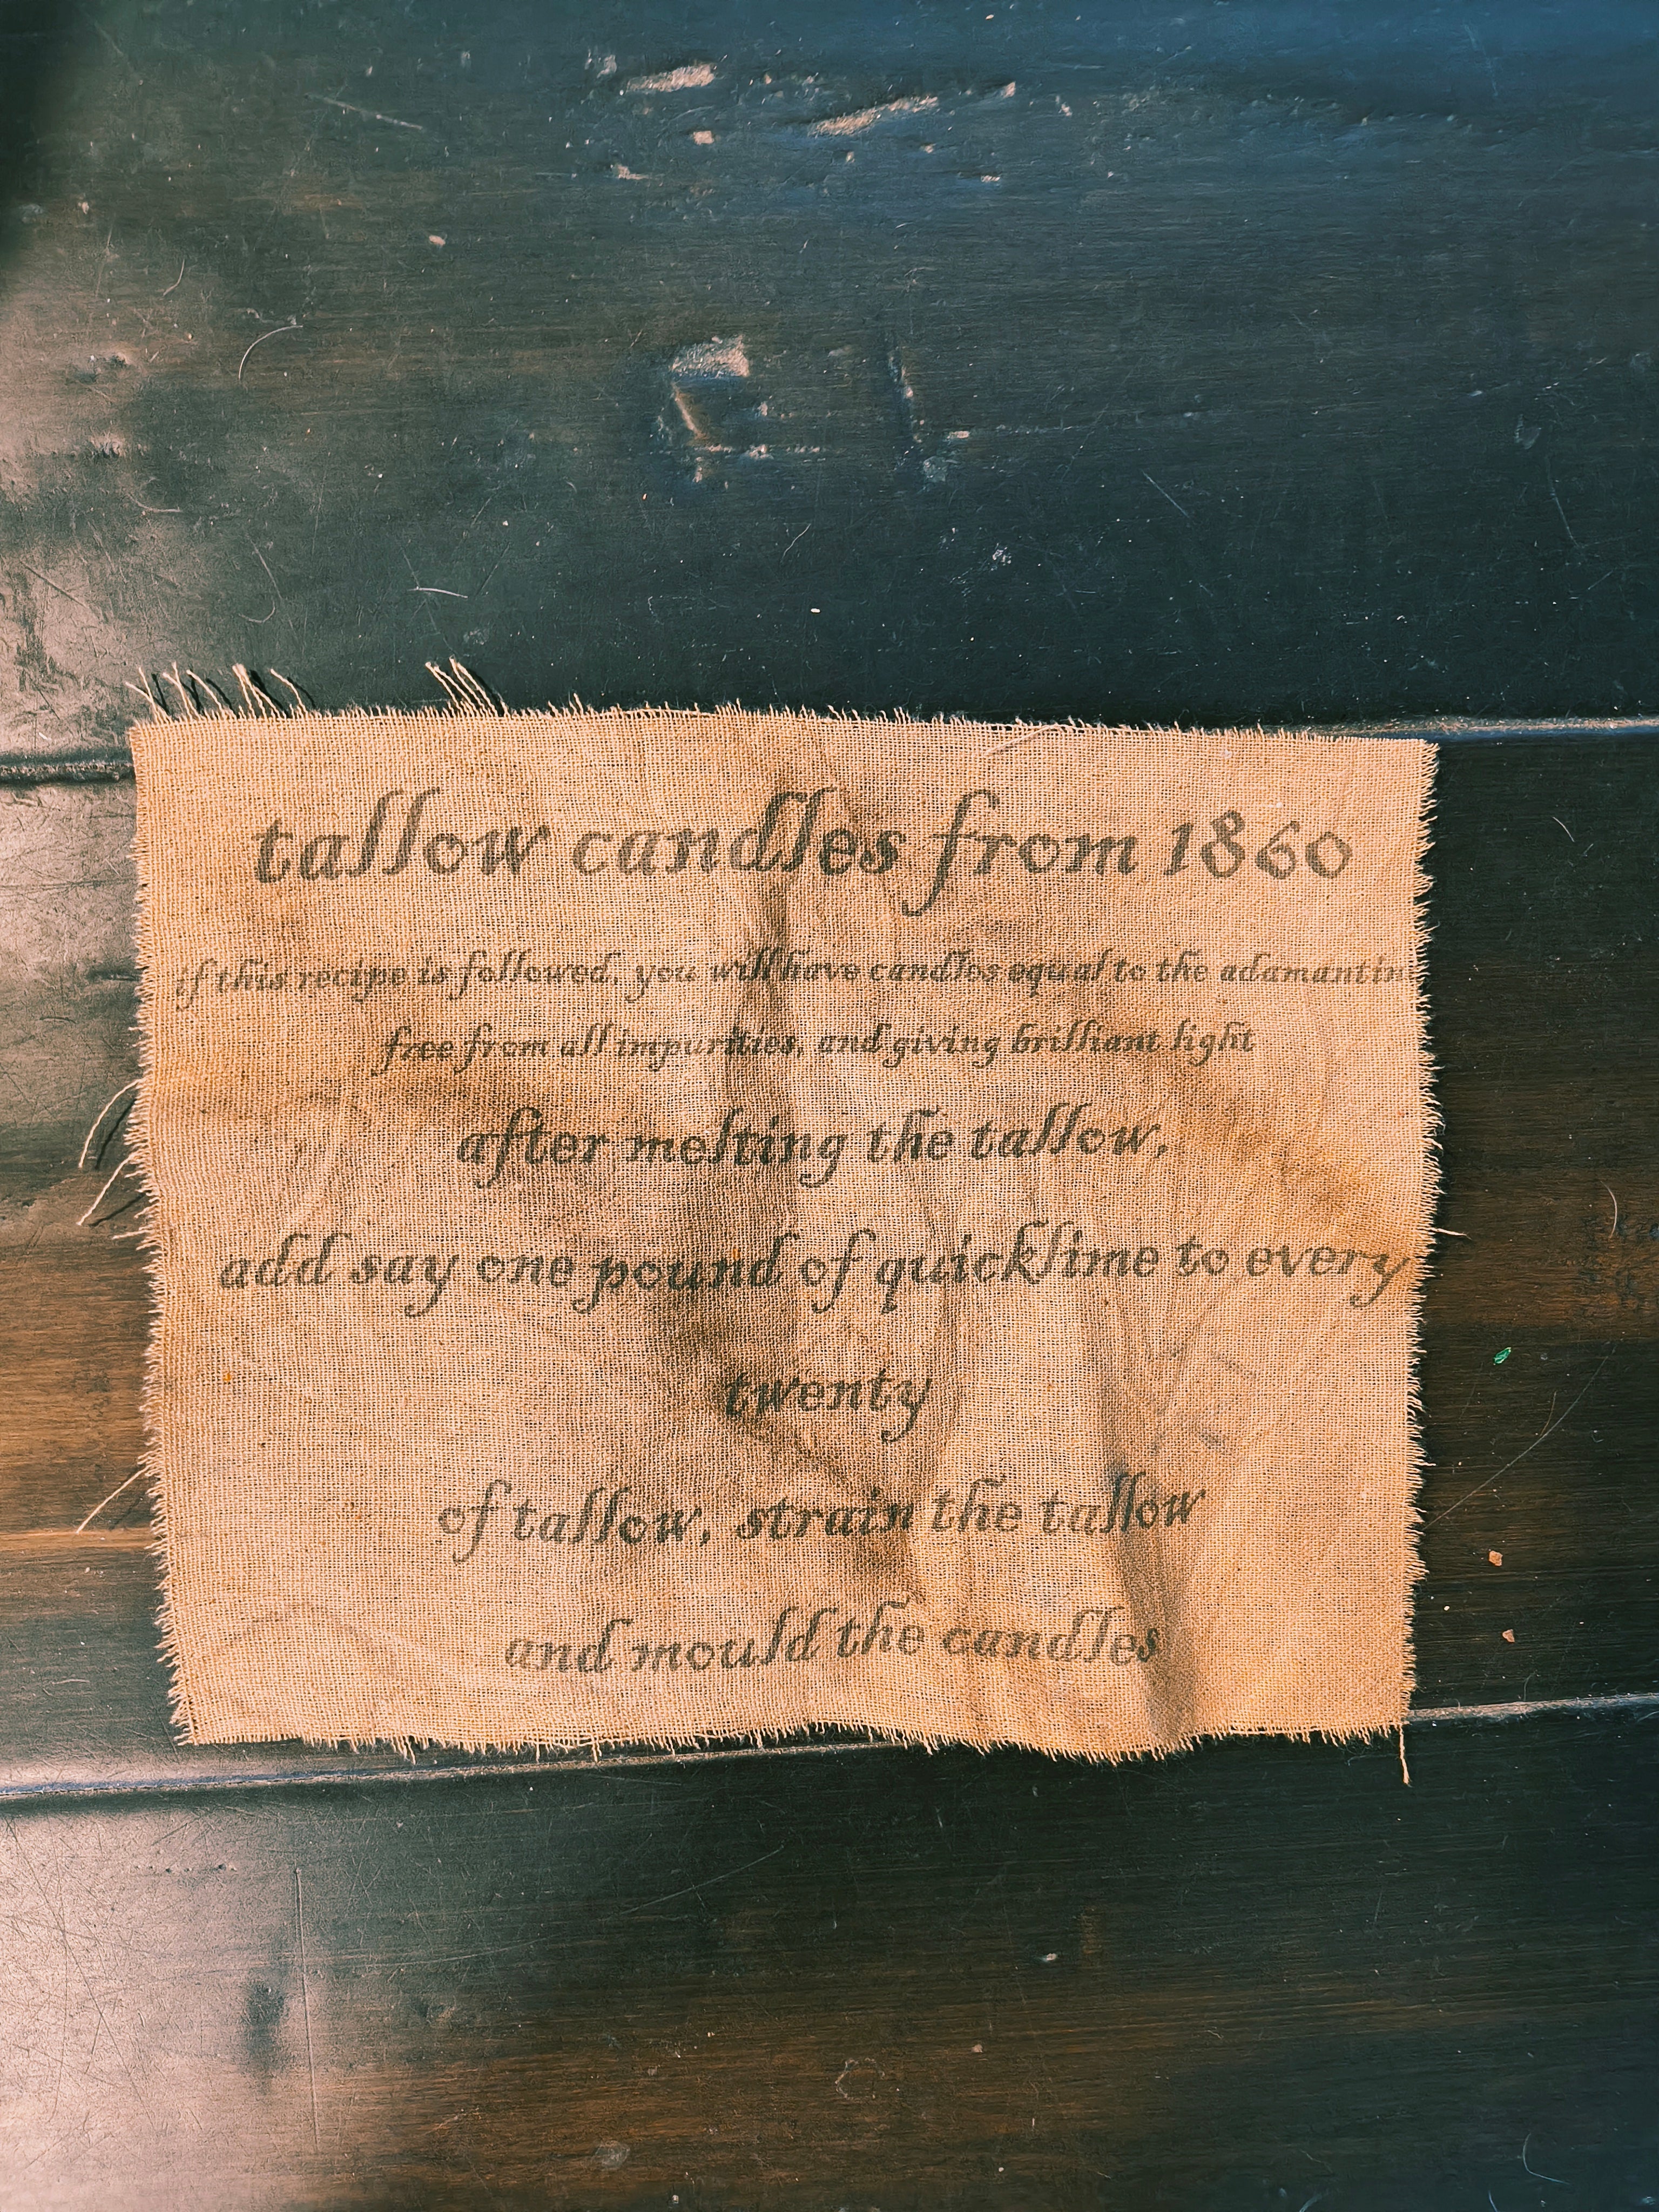 tallow candles from 1860
if this recipe is followed, you will have candles equal to the adamantin
free from all impurities, and giving brilliant light
after melting the tallow,
add say one pound of quicklime to every
twenty
of tallow, strain the tallow
and mould the candles